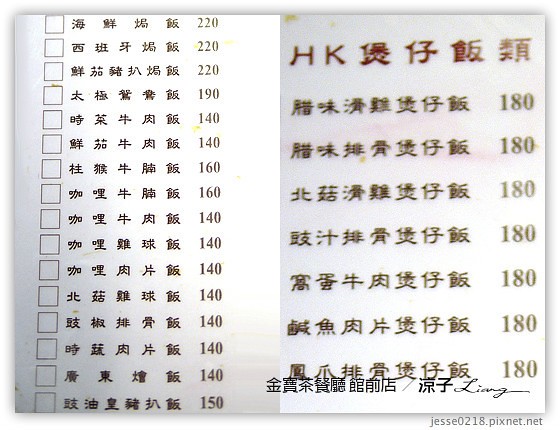 海鮮焗飯 220
西班牙焗飯 220
鮮茄豬扒焗飯 220
太極鴛鴦飯 190
時菜牛肉飯 140
鮮茄牛肉飯 140
柱猴牛腩飯 160
咖哩牛腩飯 160
咖哩牛肉飯 140
咖哩雞球飯 140
咖哩肉片飯 140
北菇雞球飯 140
豉椒排骨飯 140
時蔬肉片飯 140
廣東燴飯 140
豉油皇豬扒飯 150
HK煲仔飯類
腊味滑雞煲仔飯 180
腊味排骨煲仔飯 180
北菇滑雞煲仔飯 180
豉汁排骨煲仔飯 180
窩蛋牛肉煲仔飯 180
鹹魚肉片煲仔飯 180
鳳爪排骨煲仔飯 180
金寶茶餐廳 館前店 / 涼子 Liang
jesse0218.pixnet.net